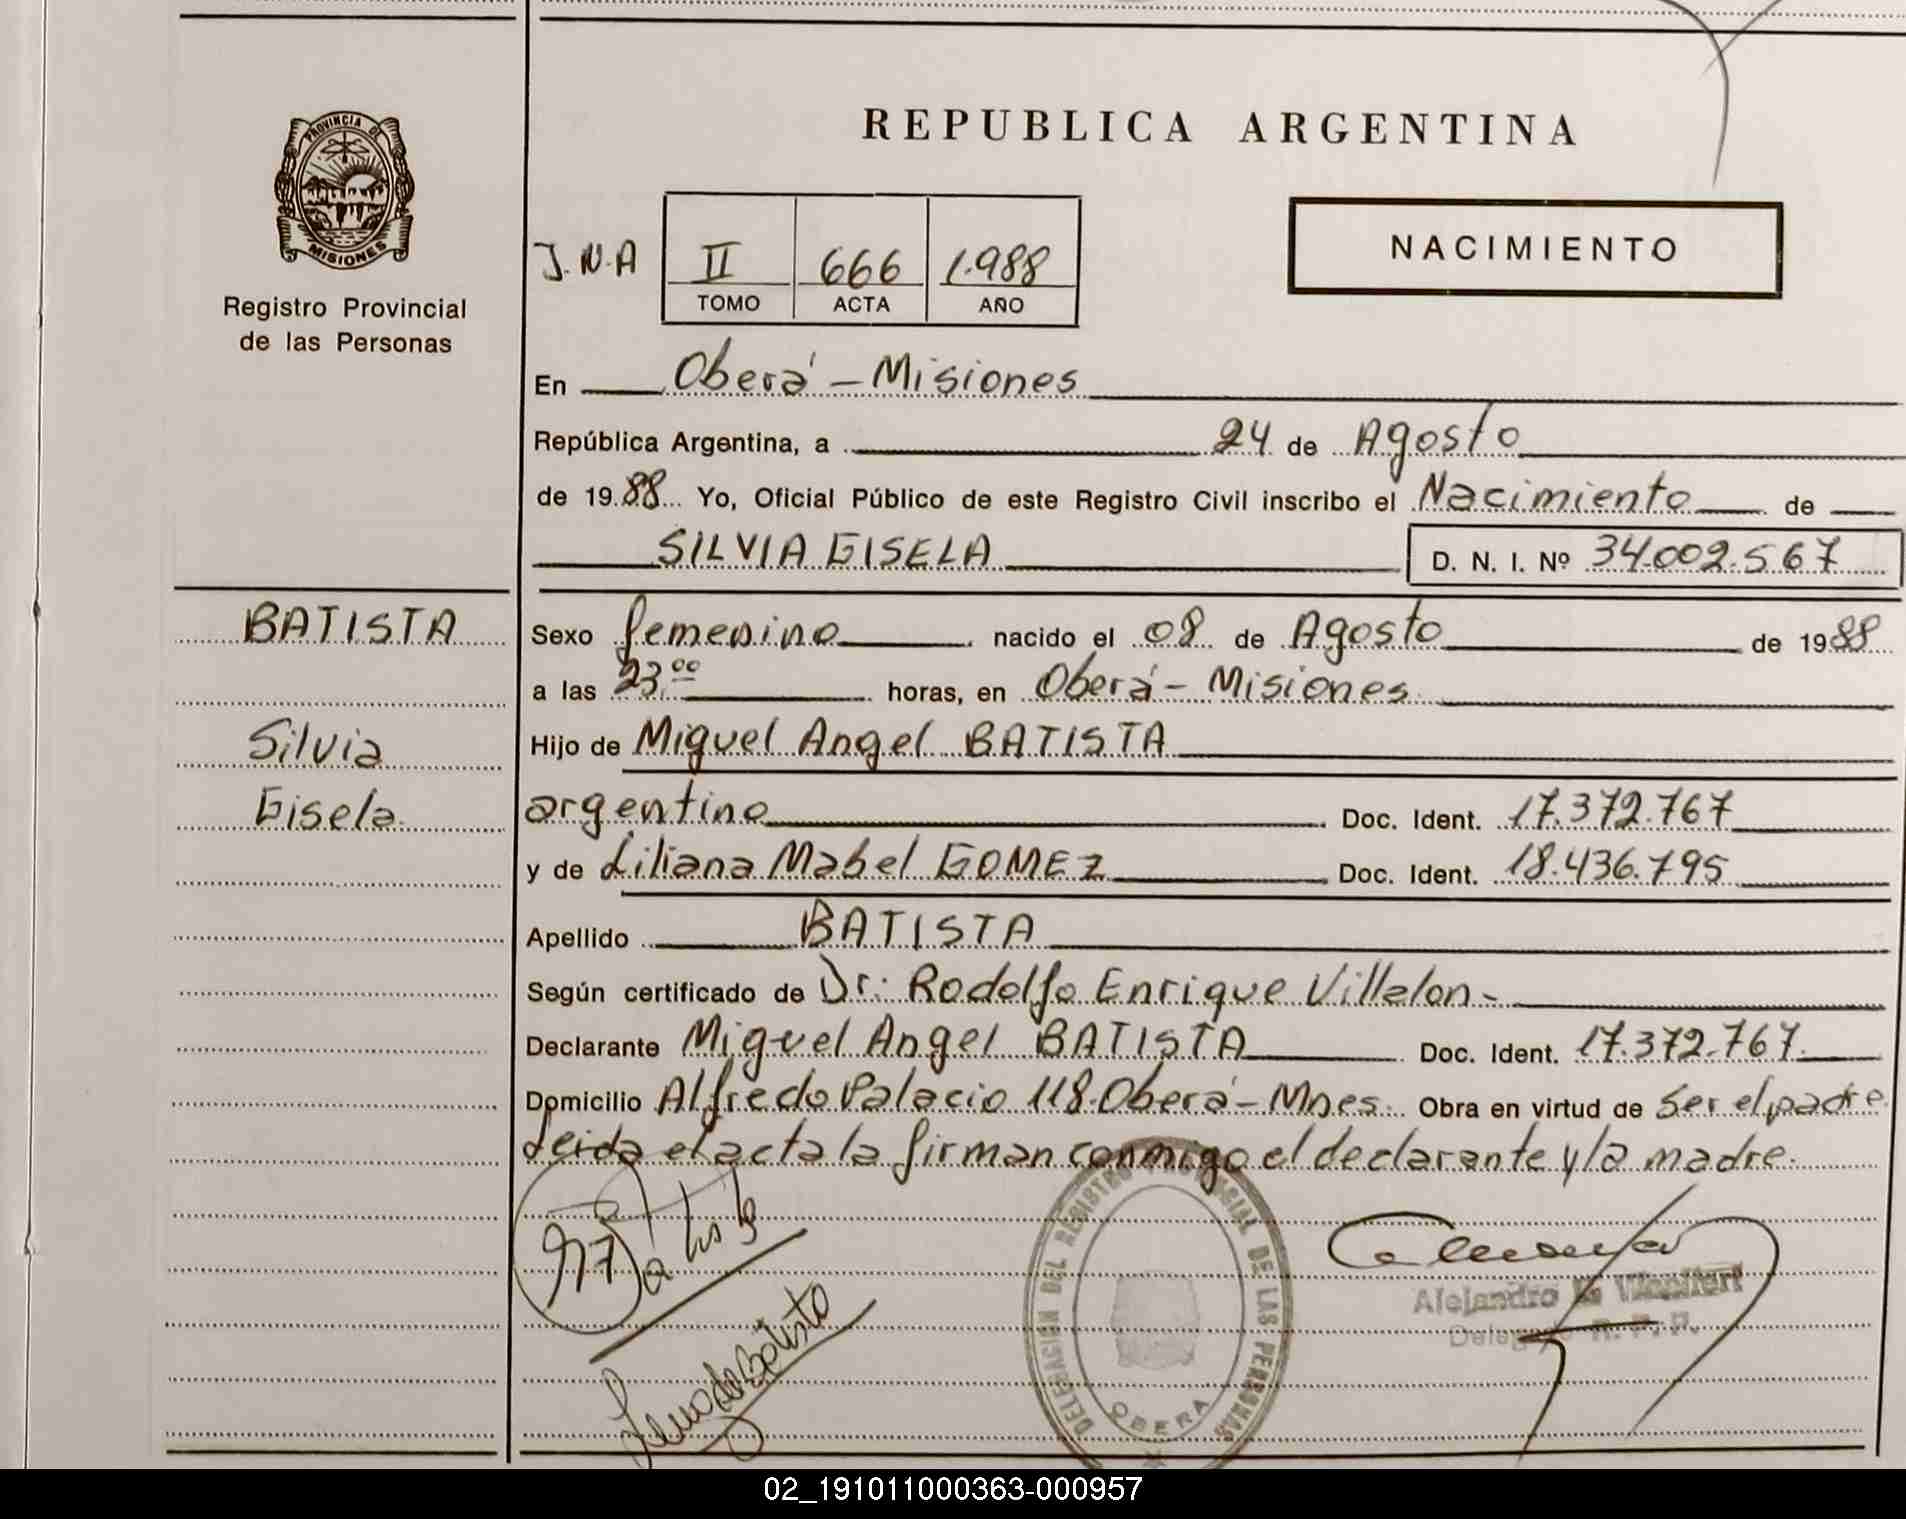 REPUBLICA ARGENTINA
PROVINCIA DE
MISIONES
Registro Provincial
de las Personas
J.N.A
II 666 1.988
TOMO ACTA AÑO
NACIMIENTO
En Oberá - Misiones
República Argentina, a 24 de Agosto
de 1988 Yo, Oficial Público de este Registro Civil inscribo el Nacimiento de
SILVIA GISELA D. N. I. Nº 34.002.567
BATISTA
Silvia
Gisela
Sexo femenino nacido el 08 de Agosto de 1988
a las 23.00 horas, en Oberá - Misiones
Hijo de Miguel Angel BATISTA
argentino Doc. Ident. 17.372.767
y de Liliana Mabel GOMEZ Doc. Ident. 18.436.795
Apellido BATISTA
Según certificado de Dr: Rodolfo Enrique Villalon-
Declarante Miguel Angel BATISTA Doc. Ident. 17.372.767
Domicilio Alfredo Palacio 118. Oberá - Mnes. Obra en virtud de Ser el padre.
Leida el acta la firman conmigo el declarante y la madre.
DELEGACIÓN DEL REGISTRO PROVINCIAL DE LAS PERSONAS
OBERA
Alejandro
R. P. P.
de Batista
02_191011000363-000957